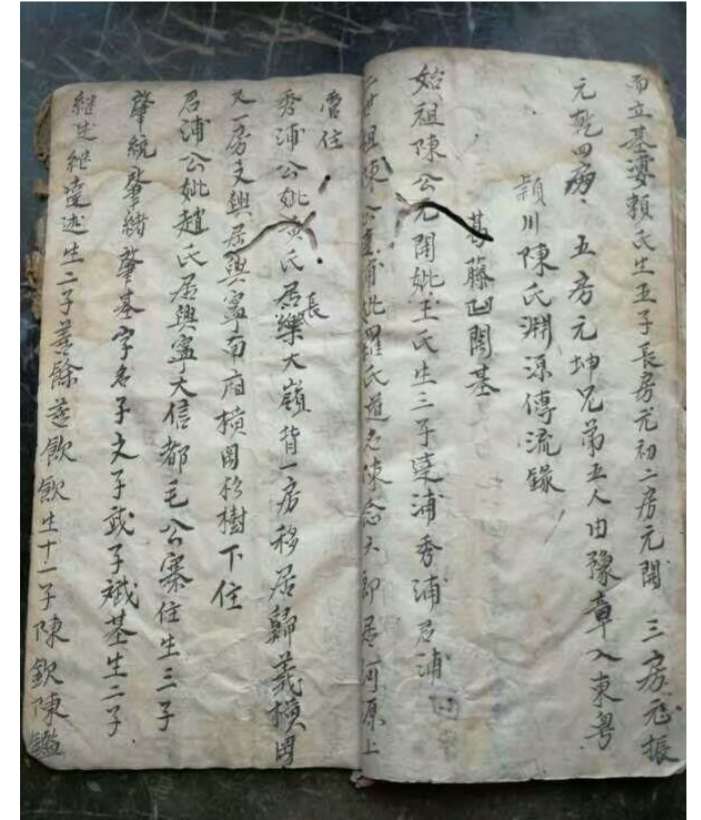 而立基婆賴氏生五子長房元初二房元開　三房元振
元乾四房、五房元坤兄弟五人由豫章入東粵
潁川陳氏淵源傳流錄
葛藤凹開基
始祖陳公元開妣王氏生三子達浦秀浦君浦
二世祖陳公達浦妣羅氏道名陳念大郎居河原上
曹住
秀浦公妣黃氏居樂大嶺背一房移居歸義橫岡
長
又一房支興居興寧南廂橫岡松樹下住
君浦公妣趙氏居興寧大信都毛公寨住生三子
肇統肇緒肇基字名子文子武子斌基生二子
継述継達述生二子善餘慈飲飲生十一子陳欽陳鑑